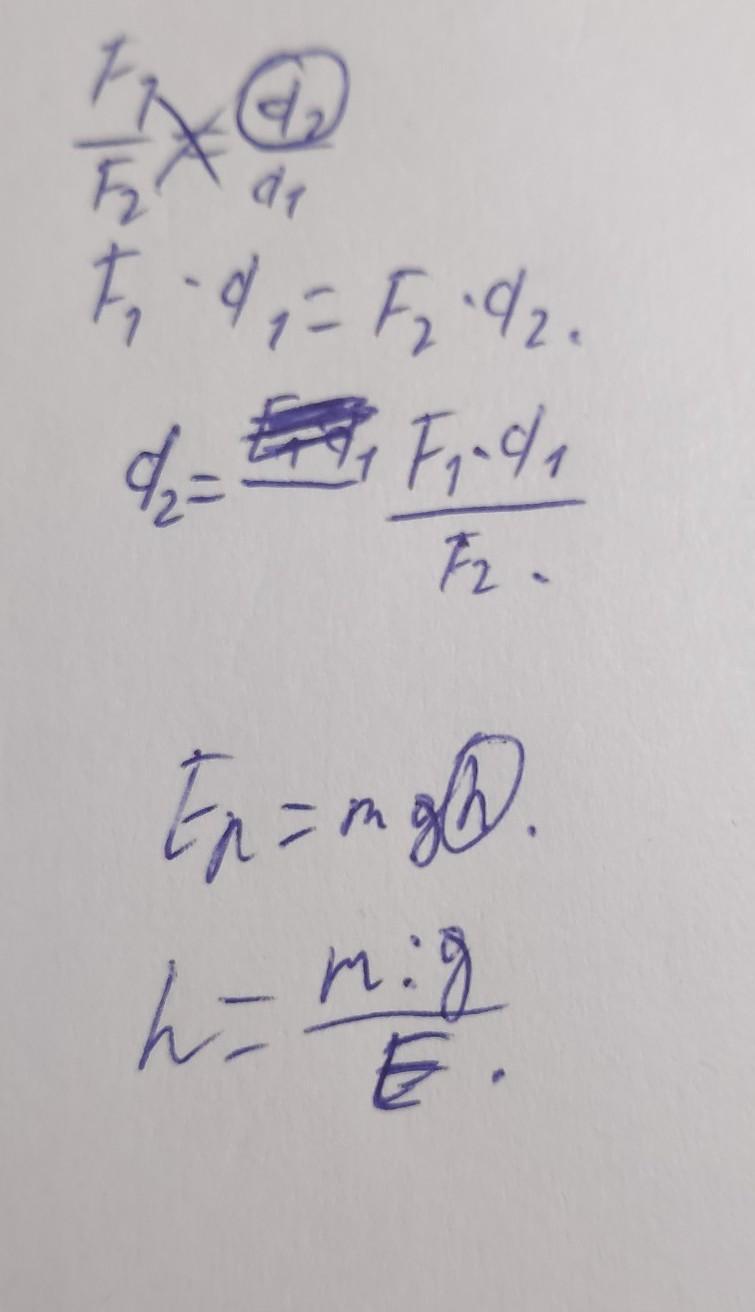 F₁/F₂ = d₂/d₁
F₁ · d₁ = F₂ · d₂.
d₂ = F₁ · d₁/F₂.
Eп = mgh.
h = m:g/E.